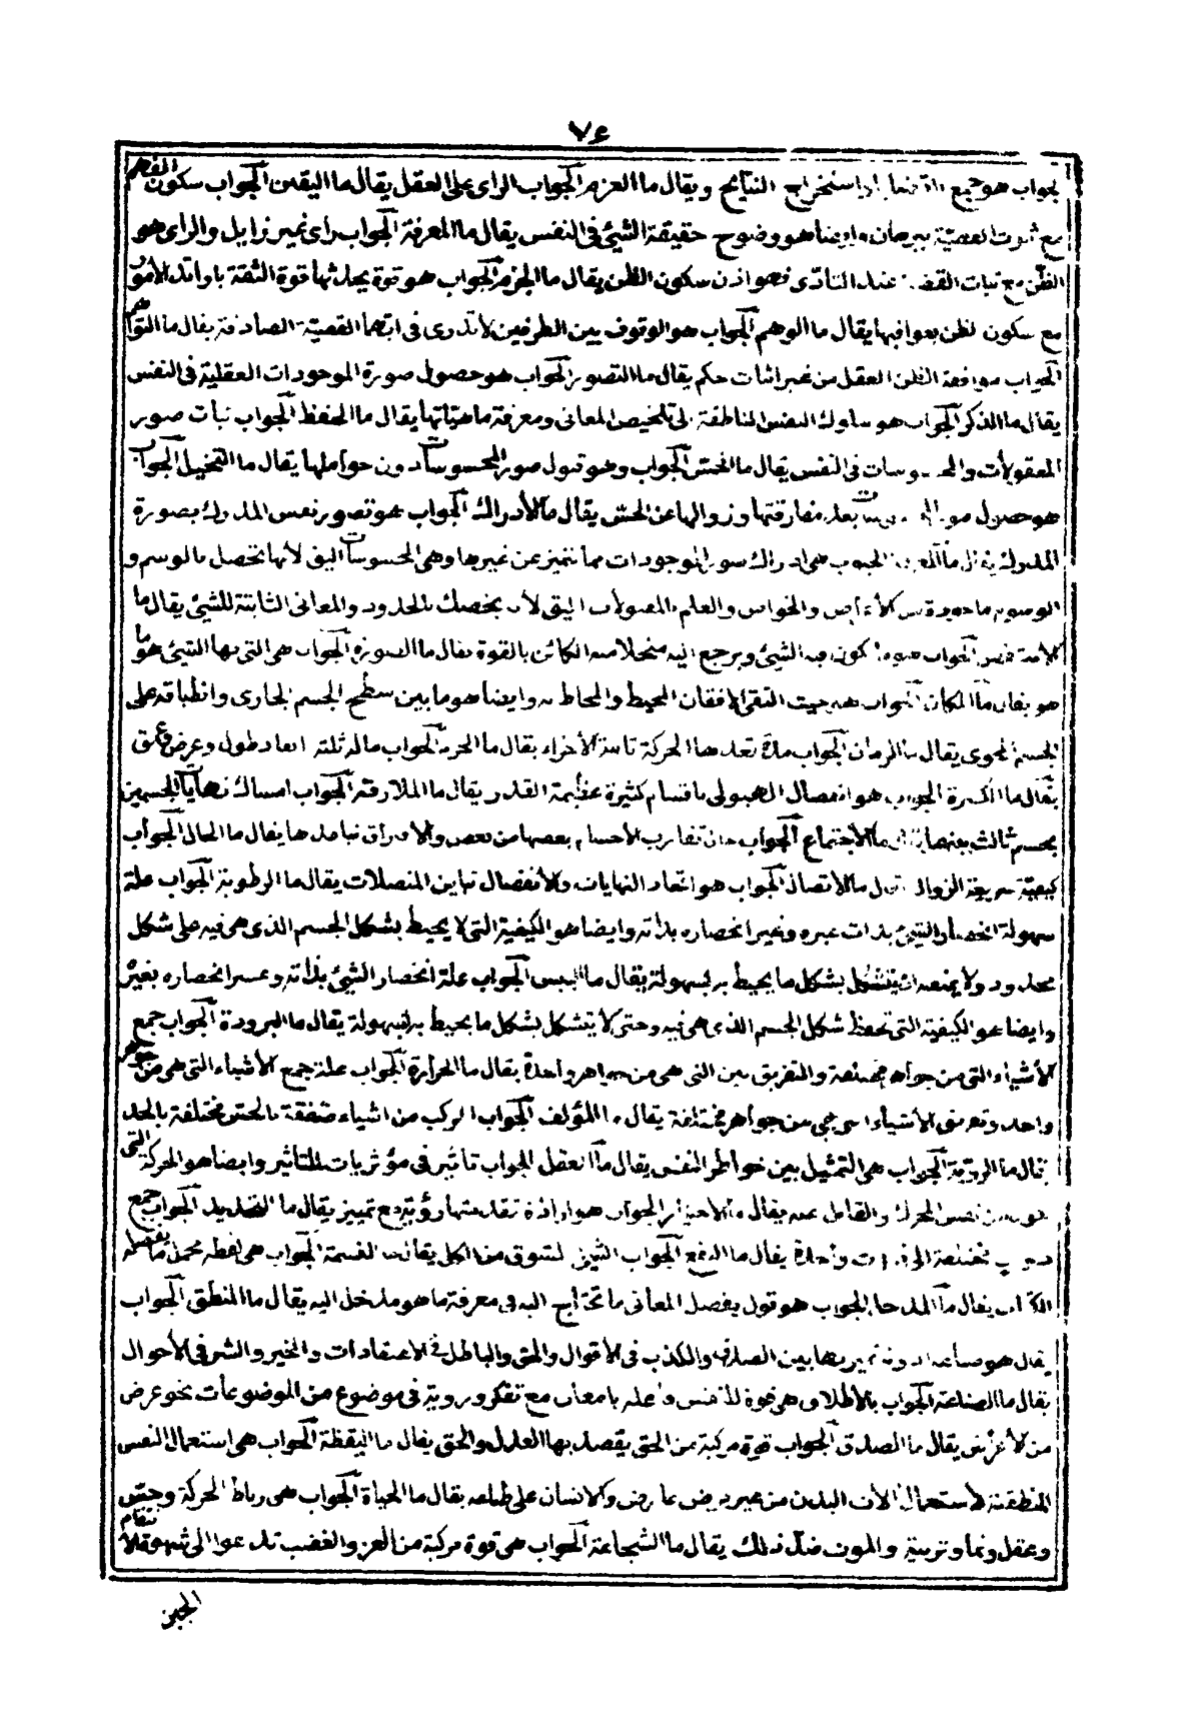 ٧٤
الجواب هو جمع القضايا واستخراج النتايج ويقال ما العزم الجواب الراى على العقل يقال ما اليقين الجواب سكون الفهم
مع ثبوت القضيّة ببرهان وايضا هو وضوح حقيقة الشيئ فى النفس يقال ما المعرفة الجواب راى غير زايل والراى هو
الظن مع ثبات القضية عند القاضى فهو اذن سكون الظن يقال ما الجزم الجواب هو قوة يحدثها قوة الثقة باواتل الامور
مع سكون لظن بعواقبها يقال ما الوهم الجواب هو الوقوف بين الطرفين لا تدرى فى ايهما القضيّة الصادقة يقال ما التوهم
الجواب موافقة الظن العقل من غير اثبات حكم يقال ما التصور الجواب هو حصول صورة الموجودات العقلية فى النفس
يقال ما الذكر الجواب هو سلوك النفس الناطقة الى تلخيص المعانى ومعرفة ماهيّاتها يقال ما الحفظ الجواب ثبات صور
المعقولات والمحسوسات فى النفس يقال ما الحسّ الجواب وهو قبول صور المحسوسات دون حواملها يقال ما التخيل الجواب
هو حصول صور المحسوسات بعد مفارقتها وزوالها عن الحسّ يقال ما الادراك الجواب هو تصور نفس المدرك بصورة
المدرك يقال ما المعرفة الجواب هى ادراك صور الموجودات مما تتميز عن غيرها وهى المحسوسات اليق لانها تحصل بالوسم و
الوسوم ماخوذة من الاعراض والخواص والعلم بالمعقولات اليق لان بخصك بالحدود والمعانى الثابتة للشيئ يقال ما
يكون فيه الشيئ ويرجع اليه منحلا منه الكائن بالقوة يقال ما الصورة الجواب هى التى بها الشيئ هو ما
هو يقال ما المكان الجواب هو حيث التقى الافقان المحيط والمحاط به وايضا هو ما بين سطح الجسم الحاوى وانطباقه على
الجسم المحوى يقال ما الزمان الجواب مدّة تعدها الحركة ثابتة الاجزاء يقال ما الجرم الجواب ماله ثلثه ابعاد طول وعرض وعمق
يقال ما الكثرة الجواب هو انفصال الهيولى باقسام كثيرة عظيمة القدر يقال ما الملازقة الجواب امساك نهايات الجسمين
بجسم ثالث بينهما يقال ما الاجتماع الجواب حال تقارب الاجسام بعضها من بعض والافتراق تباعدها يقال ما الحال الجواب
كيفيّة سريعة الزوال يقال ما الاتصال الجواب هو اتحاد النهايات والانفصال تباين المتصلات يقال ما الرطوبة الجواب علة
سهولة انحصار الشيئ بذات غيره وعسر انحصاره بذاته وايضا هو الكيفية التى لا يحيط بشكل الجسم الذى هى فيه على شكل
محدود ولا يمنعه ان يتشكل بشكل ما يحيط به بسهولة يقال ما اليبس الجواب علة انحصار الشيئ بذاته وعسر انحصاره بغيره
وايضا هو الكيفية التى تحفظ شكل الجسم الذى هى فيه وحتى لا يتشكل بشكل ما يحيط به بسهولة يقال ما البرودة الجواب جمع
الاشياء التى من جواهر مختلفة والتفريق بين التى هى من جواهر واحدة يقال ما الحرارة الجواب علة جمع الاشياء التى هى من جوهر
واحد وتفريق الاشياء التى هى من جواهر مختلفة يقال ما المؤلف الجواب المركب من اشياء متفقة بالحسّ مختلفة بالحد
يقال ما الرويّة الجواب هى التمثيل بين خواطر النفس يقال ما الفعل الجواب تاثير فى مؤثر يات للتاثير وايضا هو الحركة التى
من نفس المحرك والفاعل عنه يقال ما الاختيار الجواب هو ارادة تقدمتها رؤية مع تمييز يقال ما التحديد الجواب جمع
واحدة يقال ما الجواب الشيئ لتسوق من الكل يقال ما القسمة الجواب هى لفظه مجمل ما يفصله
الكتاب يقال ما المدخل الجواب هو قول يفصل المعانى ما تحتاج اليه فى معرفة ما هو مدخل اليه يقال ما المنطق الجواب
يقال هو صناعة ادوية تميز بها بين الصدق والكذب فى الاقوال والحق والباطل فى الاعتقادات والخير والشر فى الاحوال
يقال ما الصناعة الجواب بالاطلاق هى قوة للنفس فاعله بامعان مع تفكر وروية فى موضوع من الموضوعات نحو عرض
من الاغراض يقال ما الصدق الجواب قوة مركبة من الحق يقصد بها العدل والحق يقال ما اليقظة الجواب هى استعمال النفس
المنطقية لاستعمال الات البدن من غير مرض عارض والانسان على طباعه يقال ما الحياة الجواب هى رباط الحركة وحسّ
وعقل ونما وتربية والموت ضدّ ذلك يقال ما الشجاعة الجواب هى قوة مركبة من العز والغضب تدعوا الى شهوة الانتقام
الجبن